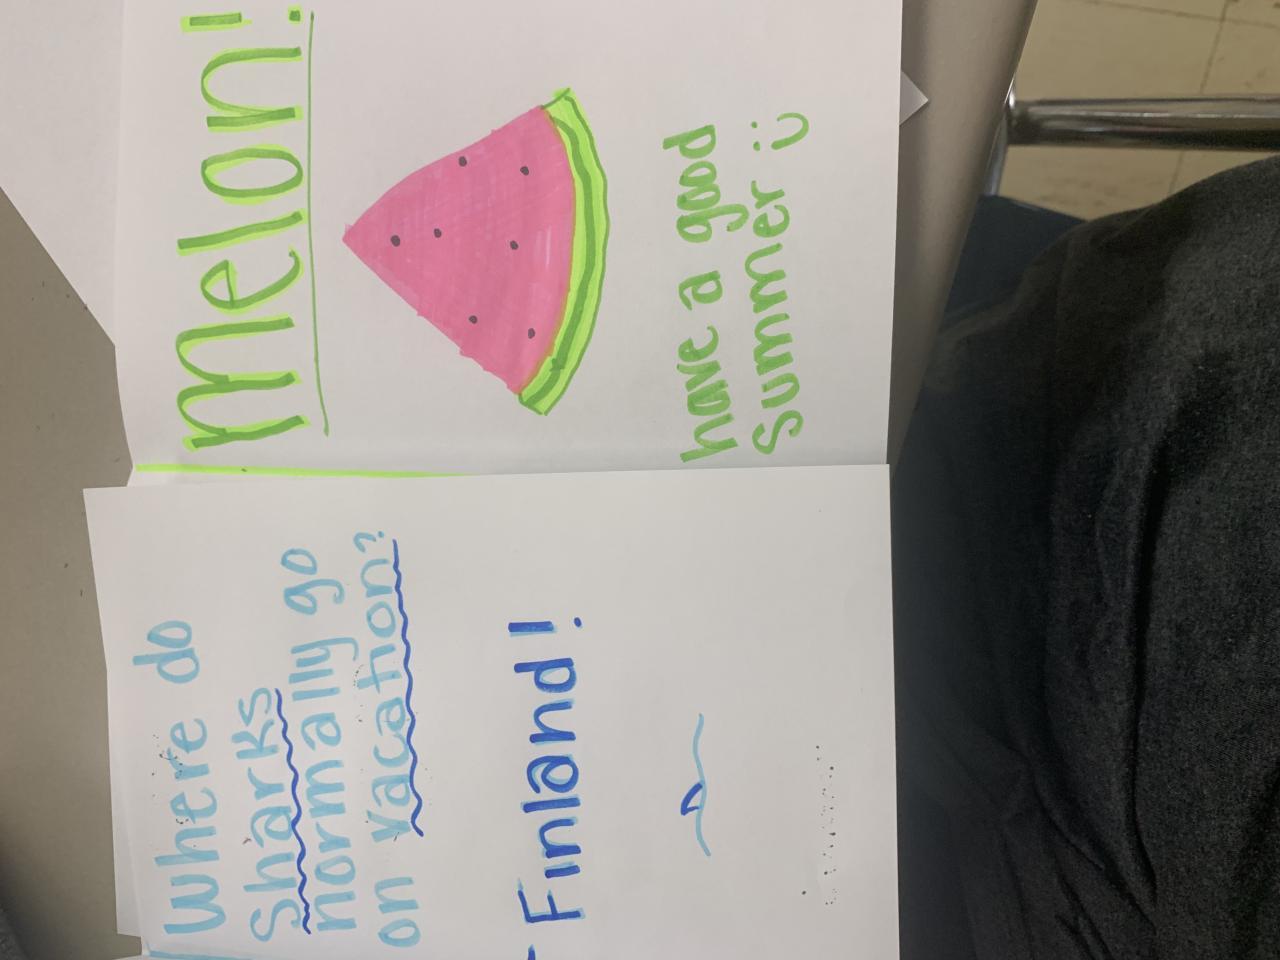 Where do
Sharks
normally go
on vacation?
- Finland!
melon!
have a good
Summer :)